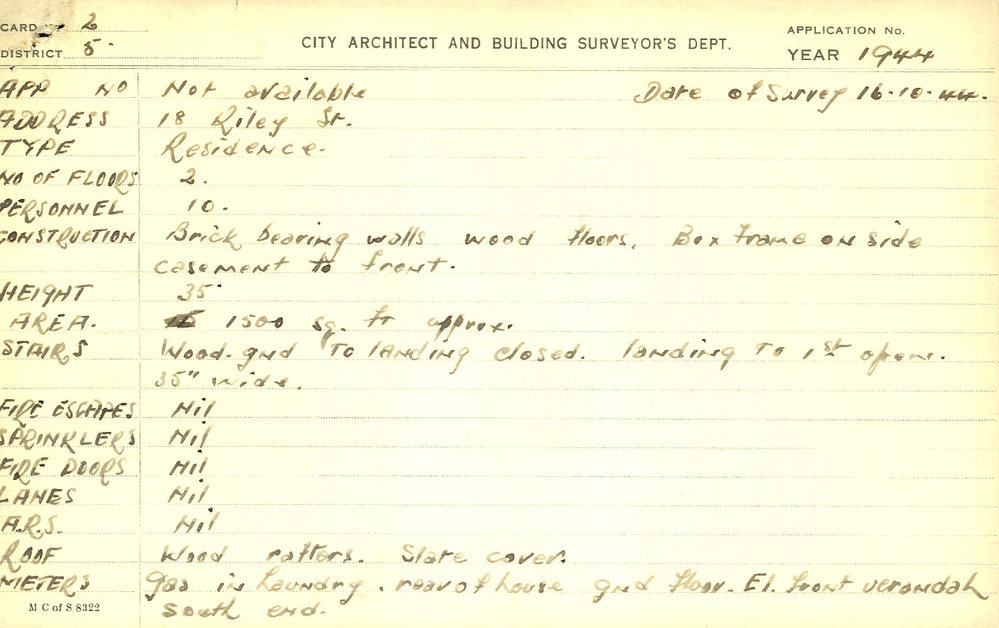 CARD No 2
DISTRICT 5.
CITY ARCHITECT AND BUILDING SURVEYOR'S DEPT.
APPLICATION No.
YEAR 1944
APP NO Not available Date of Survey 16-10-44.
ADDRESS 18 Riley St.
TYPE Residence.
NO OF FLOORS 2.
PERSONNEL 10.
CONSTRUCTION Brick bearing walls wood floors. Box frame on side
casement to front.
HEIGHT 35'
AREA. 1500 sq. ft approx.
STAIRS Wood. gnd To landing closed. landing To 1st open.
35" wide.
FIRE ESCAPES Nil
SPRINKLERS Nil
FIRE DOORS Nil
LANES Nil
A.R.S. Nil
ROOF Wood rafters. Slate cover.
METERS gas in laundry. rear of house gnd floor. El. front verandah
South end.
M C of S 8322